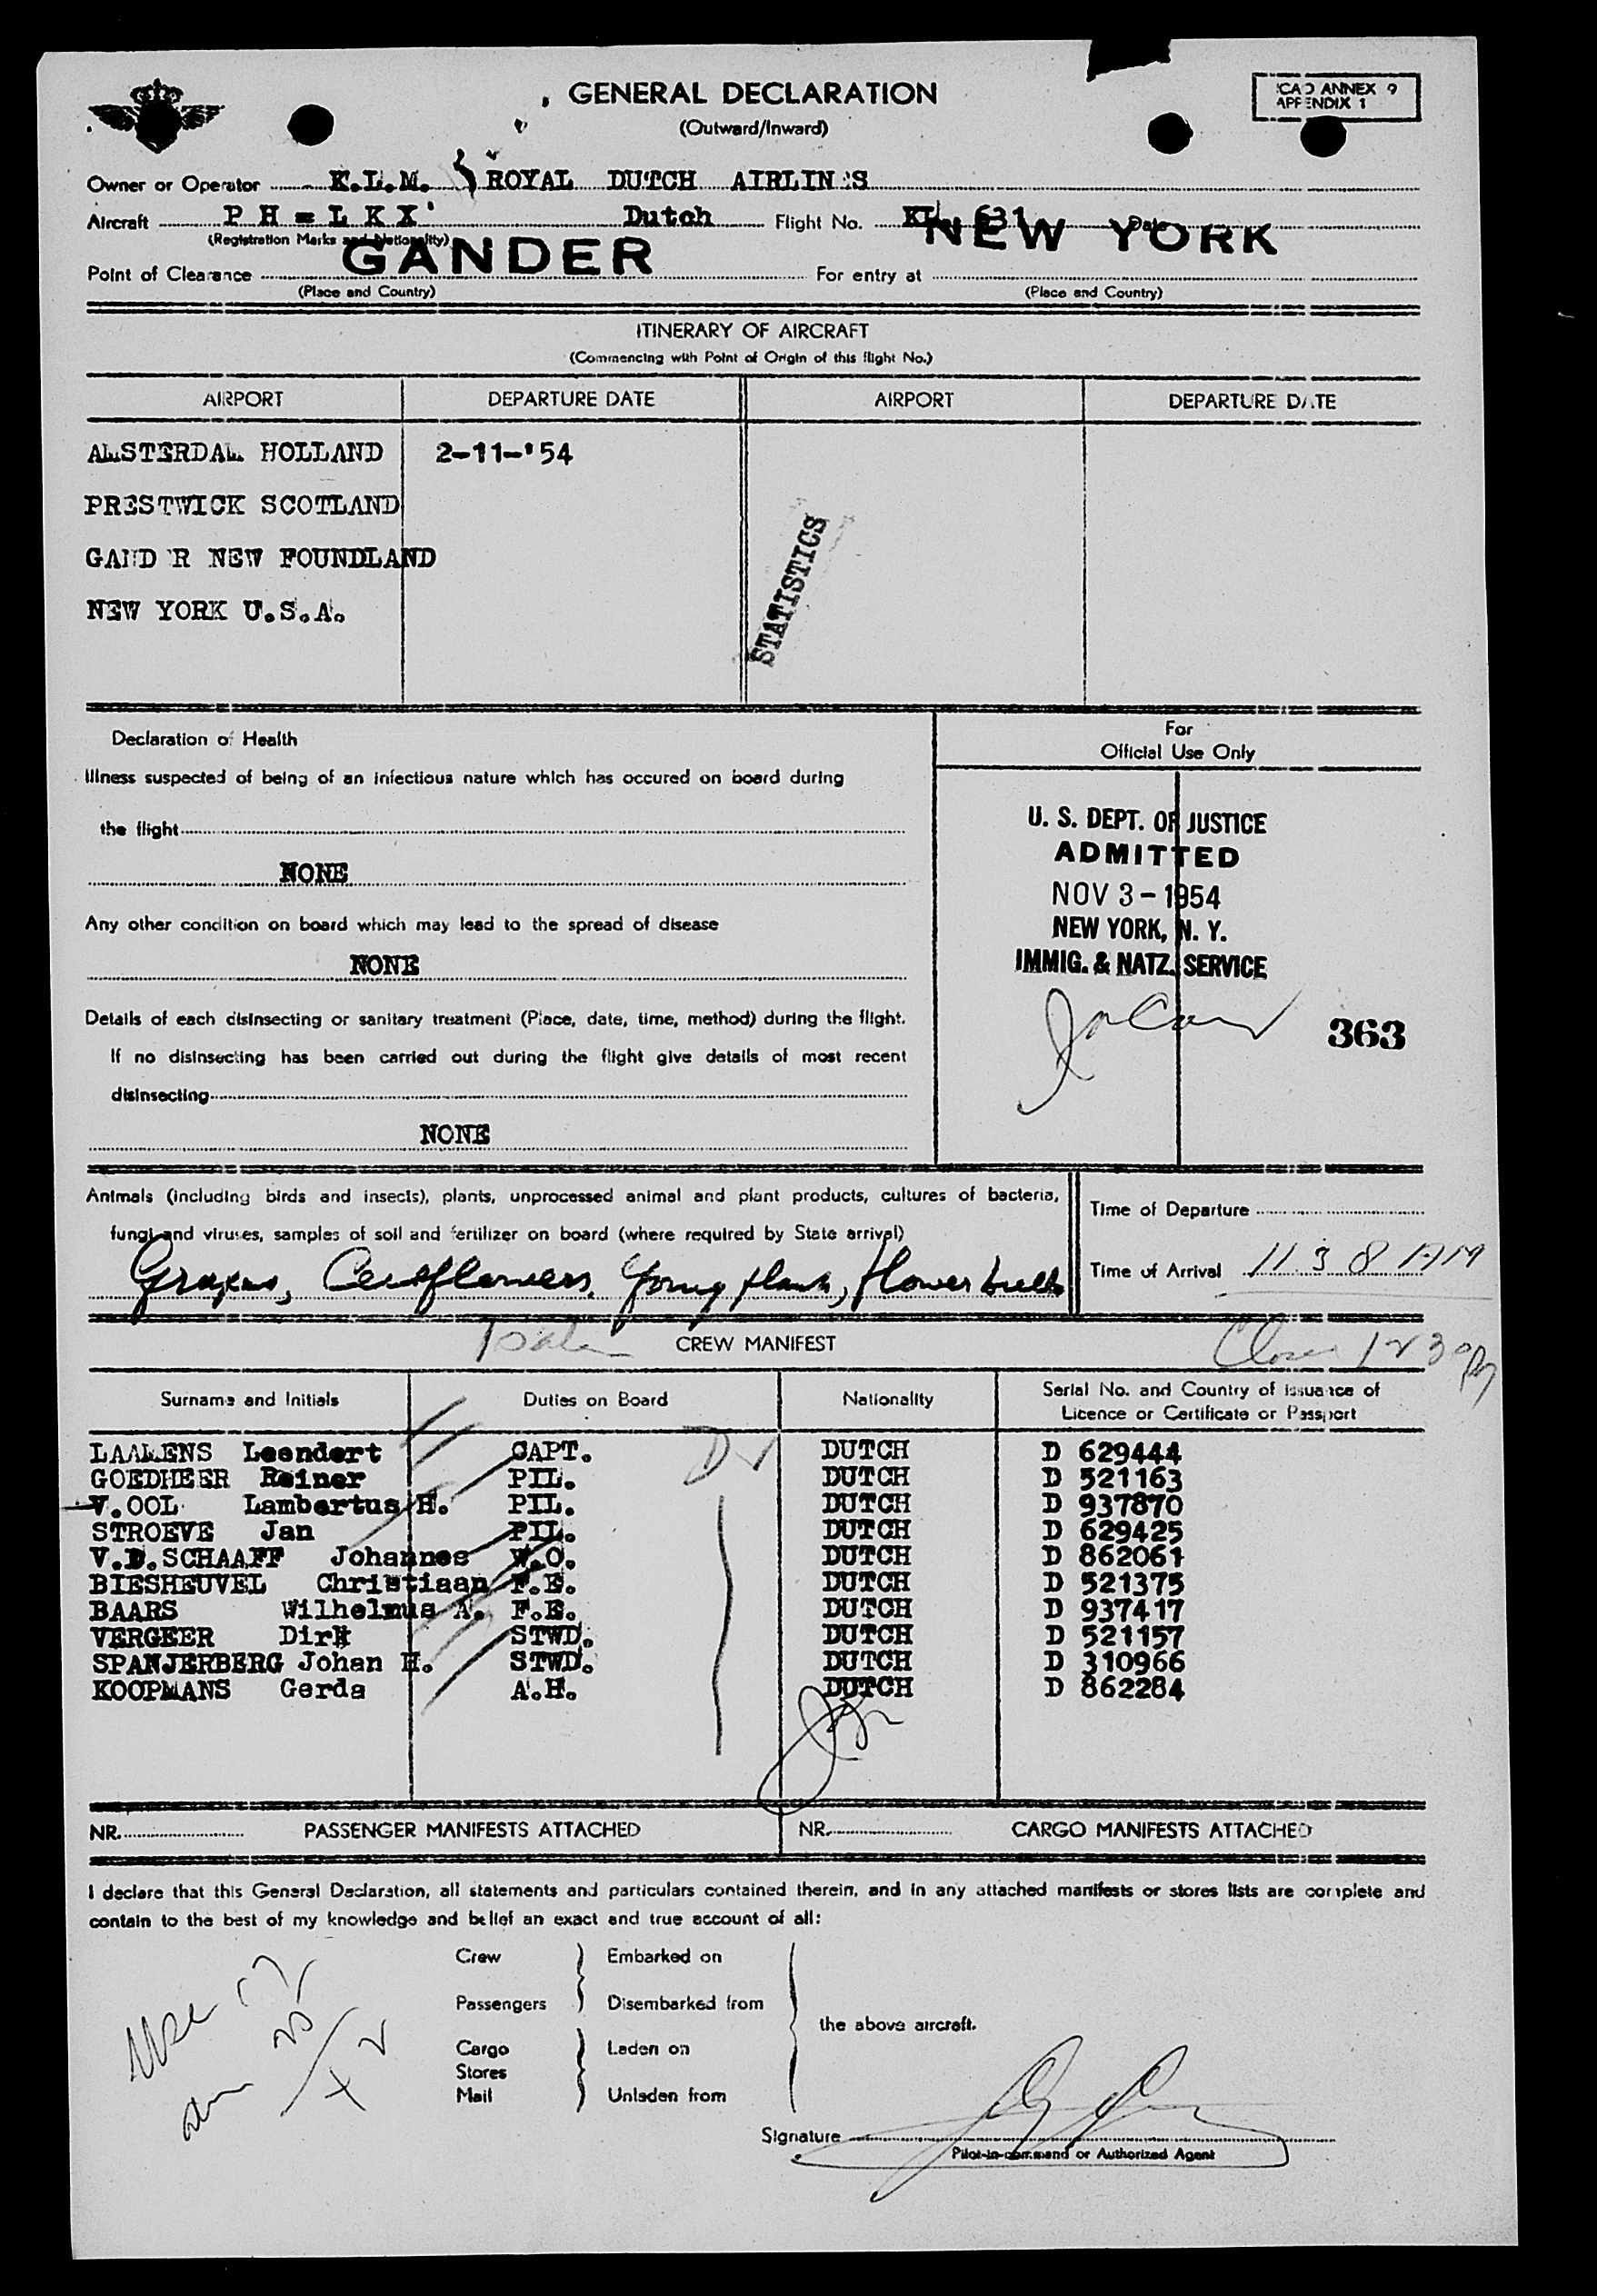 GENERAL DECLARATION
(Outward/Inward)
ICAO ANNEX 9
APPENDIX 1
Owner or Operator K.L.M. ROYAL DUTCH AIRLINES
Aircraft PH = LKX Dutch Flight No. KL 631 Date
(Registration Marks and Nationality)
NEW YORK
GANDER
Point of Clearance For entry at
(Place and Country) (Place and Country)
ITINERARY OF AIRCRAFT
(Commencing with Point of Origin of this flight No.)
AIRPORT DEPARTURE DATE AIRPORT DEPARTURE DATE
AMSTERDAM HOLLAND 2-11-'54
PRESTWICK SCOTLAND
GANDER NEW FOUNDLAND
NEW YORK U.S.A.
STATISTICS
Declaration of Health
Illness suspected of being of an infectious nature which has occured on board during
the flight
NONE
Any other condition on board which may lead to the spread of disease
NONE
Details of each disinsecting or sanitary treatment (Place, date, time, method) during the flight.
If no disinsecting has been carried out during the flight give details of most recent
disinsecting
NONE
For
Official Use Only
U. S. DEPT. OF JUSTICE
ADMITTED
NOV 3 - 1954
NEW YORK, N. Y.
IMMIG. & NATZ. SERVICE
363
Animals (including birds and insects), plants, unprocessed animal and plant products, cultures of bacteria,
fungi and viruses, samples of soil and fertilizer on board (where required by State arrival)
Grapes, Young plants, Flower bulbs
Time of Departure
Time of Arrival 11 38 AM
CREW MANIFEST
Close 12 30 PM
Surname and Initials Duties on Board Nationality Serial No. and Country of issuance of
Licence or Certificate or Passport
LAAMENS Leendert CAPT. DUTCH D 629444
GOEDHEER Reiner PIL. DUTCH D 521163
V.OOL Lambertus H. PIL. DUTCH D 937870
STROEVE Jan PIL. DUTCH D 629425
V.D.SCHAAFF Johannes W.O. DUTCH D 862061
BIESHEUVEL Christiaan F.E. DUTCH D 521375
BAARS Wilhelmus A. F.E. DUTCH D 937417
VERGEER Dirk STWD. DUTCH D 521157
SPANJERBERG Johan H. STWD. DUTCH D 310966
KOOPMANS Gerda A.H. DUTCH D 862284
NR. PASSENGER MANIFESTS ATTACHED NR. CARGO MANIFESTS ATTACHED
I declare that this General Declaration, all statements and particulars contained therein, and in any attached manifests or stores lists are complete and
contain to the best of my knowledge and belief an exact and true account of all:
Crew Embarked on
Passengers Disembarked from
the above aircraft.
Cargo Laden on
Stores
Mail Unladen from
Signature
Pilot-in-command or Authorized Agent